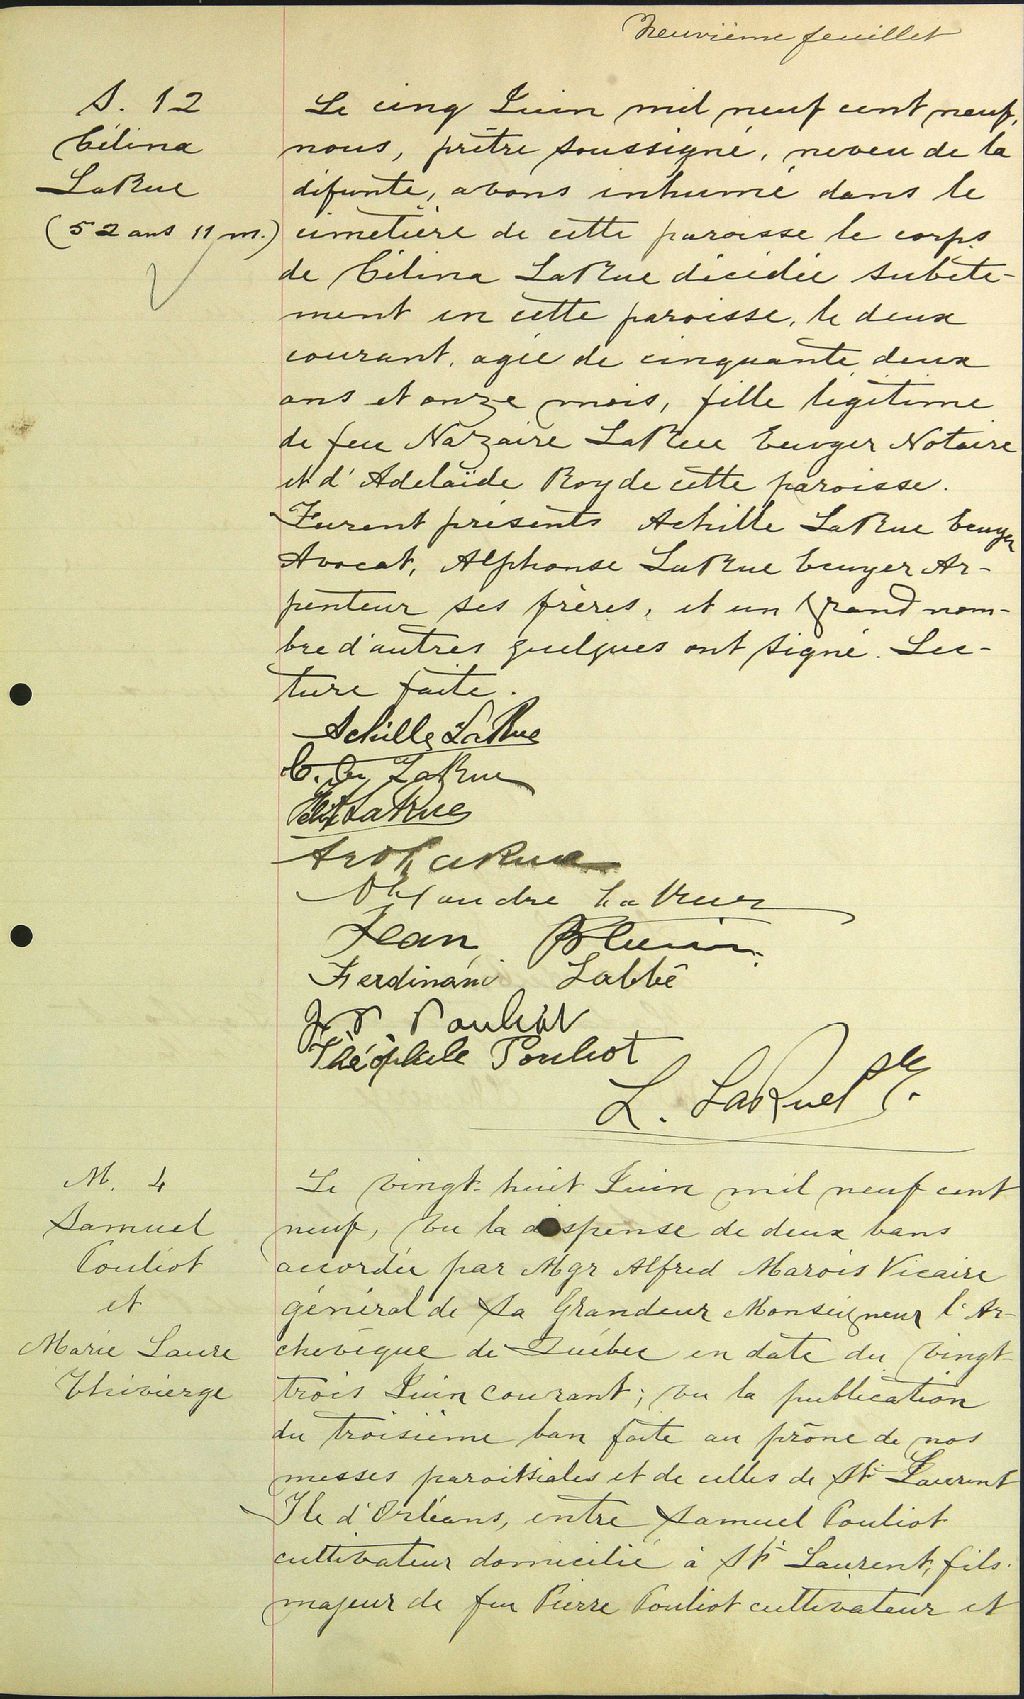 Neuvième feuillet
S. 12
Célina
LaRue
(52 ans 11 m.)
Le cinq Juin mil neuf cent neuf,
nous, prêtre soussigné, neveu de la
difunte, avons inhumé dans le
cimetière de cette paroisse le corps
de Célina LaRue décédée subite-
ment en cette paroisse, le deux
courant, agée de cinquante deux
ans et onze mois, fille légitime
de feu Nazaire LaRue Ecuyer Notaire
et d'Adelaïde Roy de cette paroisse.
Furent présents Achille LaRue Ecuyer
Avocat, Alphonse LaRue Ecuyer Ar-
penteur ses frères, et un grand nom-
bre d'autres quelques ont signé. Lec-
ture faite.
Achille LaRue
LaRue
LaRue
LaRue
Alexandre LaRue
Jean
Ferdinand Labbé
Pouliot
Théophile Pouliot
L. LaRue Ptre.
M. 4
Samuel
Pouliot
et
Marie Laure
Thivierge
Le vingt-huit Juin mil neuf cent
neuf, vu la dispense de deux bans
accordée par Mgr Alfred Marois Vicaire
général de Sa Grandeur Monseigneur l'Ar-
chevêque de Québec en date du vingt-
trois Juin courant; vu la publication
du troisième ban faite au prône de nos
messes paroissiales et de celles de St Laurent
Ile d'Orléans, entre Samuel Pouliot
cultivateur domicilié à St Laurent, fils
majeur de feu Pierre Pouliot cultivateur et